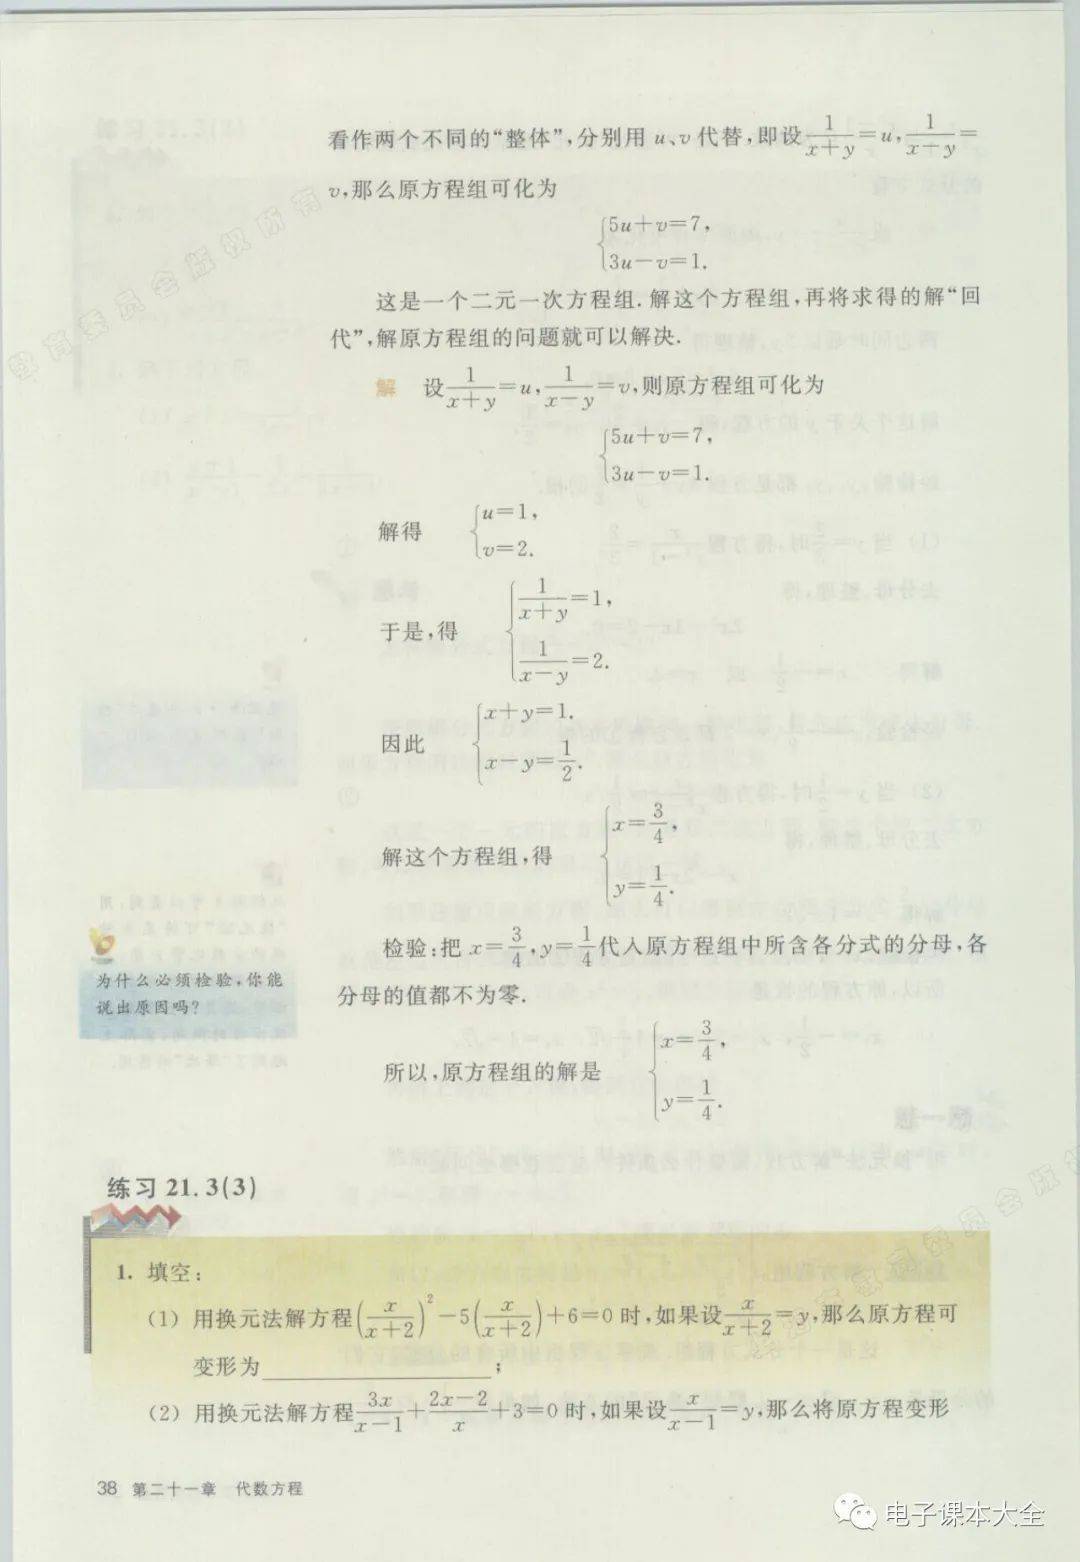 看作两个不同的“整体”,分别用 u、v 代替,即设 1/(x+y)=u, 1/(x-y)=
v,那么原方程组可化为
{5u+v=7,
3u-v=1.
这是一个二元一次方程组.解这个方程组,再将求得的解“回
代”,解原方程组的问题就可以解决.
解 设 1/(x+y)=u, 1/(x-y)=v,则原方程组可化为
{5u+v=7,
3u-v=1.
解得 {u=1,
v=2.
于是,得 {1/(x+y)=1,
1/(x-y)=2.
因此 {x+y=1.
x-y=1/2.
解这个方程组,得 {x=3/4,
y=1/4.
检验:把 x=3/4, y=1/4 代入原方程组中所含各分式的分母,各
分母的值都不为零.
为什么必须检验,你能
说出原因吗?
所以,原方程组的解是 {x=3/4,
y=1/4.
练习 21.3(3)
1. 填空:
(1) 用换元法解方程 (x/(x+2))²-5(x/(x+2))+6=0 时,如果设 x/(x+2)=y,那么原方程可
变形为____________;
(2) 用换元法解方程 3x/(x-1)+(2x-2)/x+3=0 时,如果设 x/(x-1)=y,那么将原方程变形
38 第二十一章 代数方程
电子课本大全